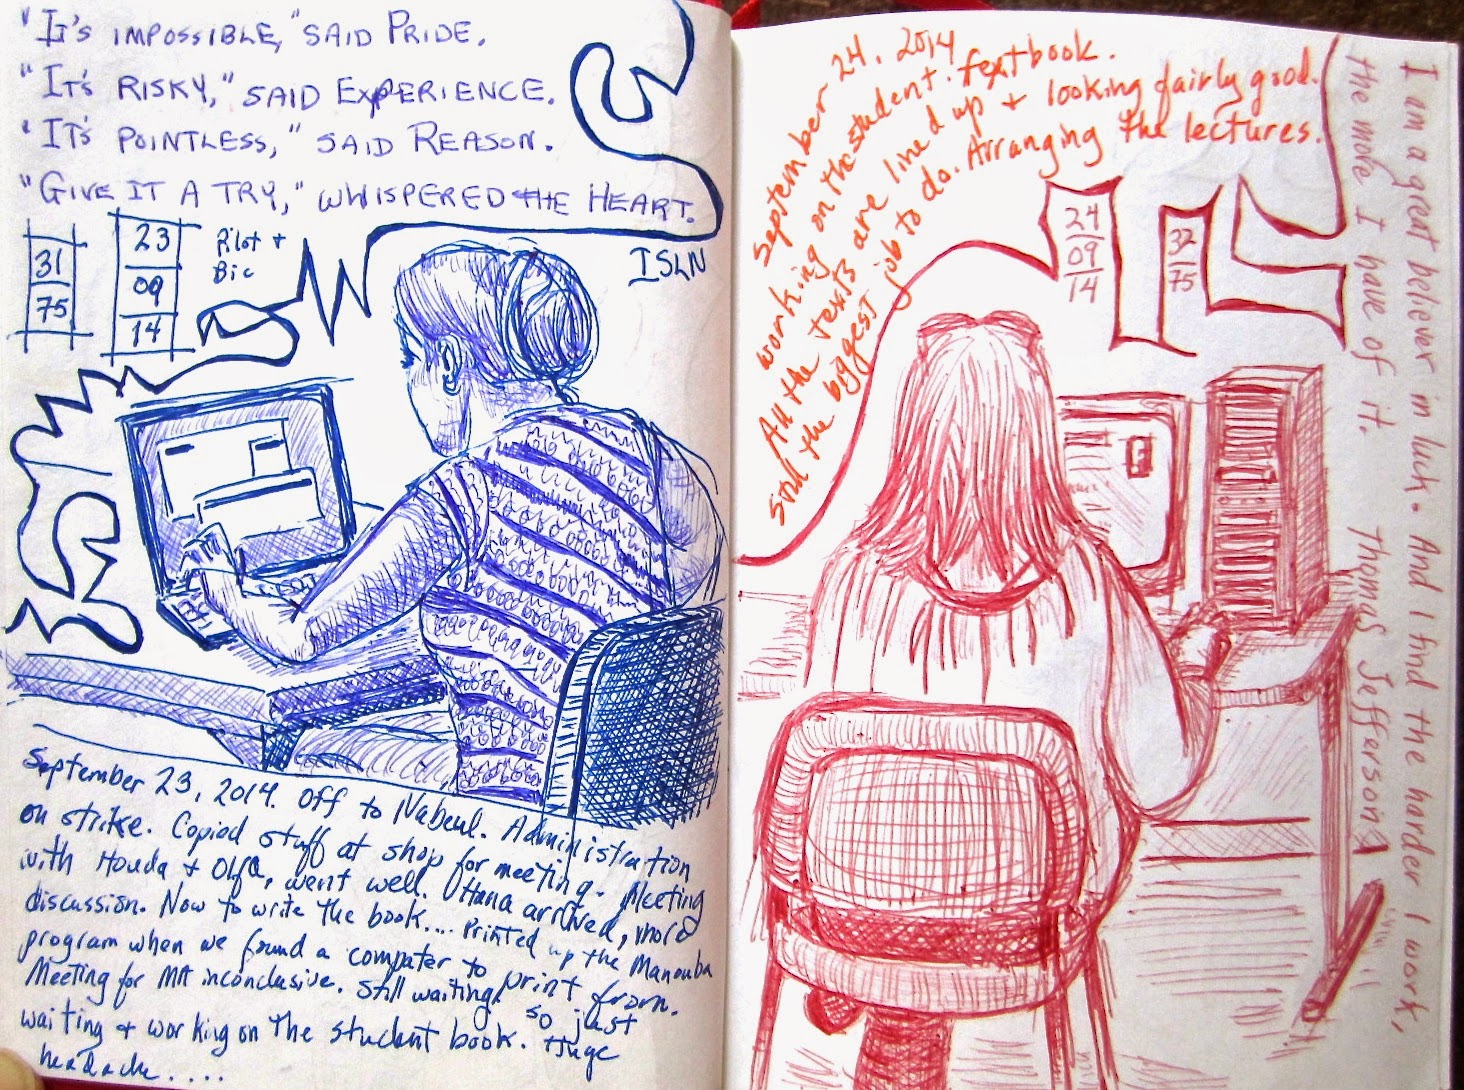 "It's impossible," said Pride.
"It's risky," said Experience.
"It's pointless," said Reason.
"Give it a try," whispered the Heart.
31
75
23
09
14
Pilot +
Bic
ISLN
September 23, 2014. Off to Nabeul. Administration
on strike. Copied stuff at shop for meeting. Meeting
with Houda + Olfa, went well. Hana arrived, more
discussion. Now to write the book.... Printed up the Manouba
program when we found a computer to print from.
Meeting for MA inconclusive. Still waiting, so just
waiting + working on the student book. Huge
headache....
September 24, 2014
working on the student textbook.
All the texts are lined up + looking fairly good.
Still the biggest job to do. Arranging the lectures.
24
09
14
32
75
I am a great believer in luck. And I find the harder I work,
the more I have of it. Thomas Jefferson